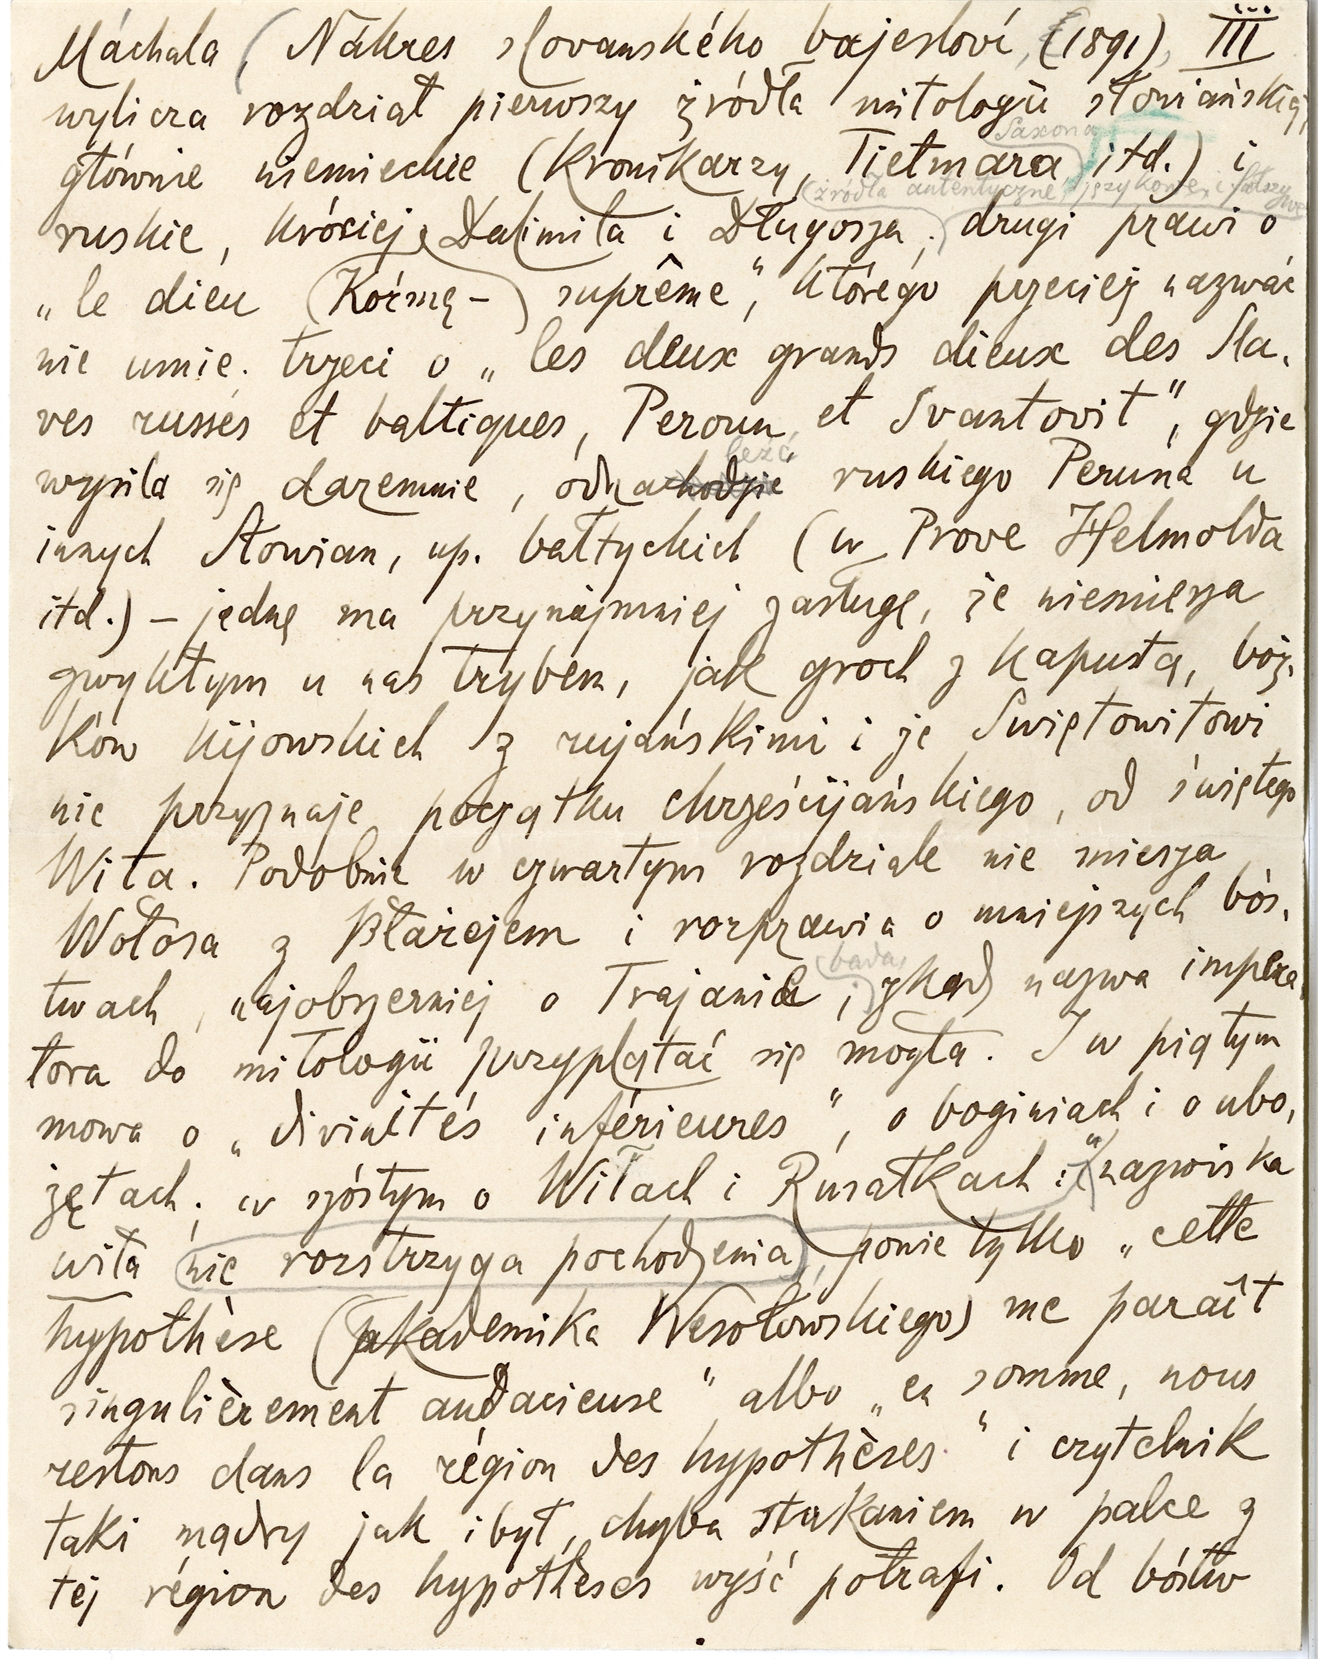 Máchala (Nákres slovanského bájesloví, (1891), III
wylicza rozdział pierwszy źródła mitologii słowiańskiej,
Saxona
głównie niemieckie (kronikarzy, Tietmara itd.) i
(źródła autentyczne
ruskie, króciej Dalimila i Długosza; drugi prawi o
„le dieu suprême", którego przeciej nazwać
nie umie. trzeci o „les deux grands dieux des Sla-
ves russes et baltiques, Peroun et Svantovit", gdzie
leźć
wysila się daremnie, odna ruskiego Peruna u
innych Słowian, np. bałtyckich (w Prove Helmolda
itd.) – jednę ma przynajmniej zasługę, że niemiesza
zwykłym u nas trybem, jak groch z kapustą, boż-
ków kijowskich z rujańskimi i że Świętowitowi
nie przyznaje początku chrześcijańskiego, od świętego
Wita. Podobnie w czwartym rozdziale nie miesza
Wołosa z Błażejem i rozprawia o mniejszych bós-
bada,
twach, najobszerniej o Trajanie, zkąd nazwa impera-
tora do mitologii przyplątać się mogła. I w piątym
mowa o „divinités inférieures", o boginiach i o ubo-
żętach; w szóstym o Wiłach i Rusałkach; nazwiska
wiła nie rozstrzyga pochodzenia, powie tylko „cette
hypothèse (akademika Wesołowskiego) me paraît
singulièrement audacieuse" albo „en somme, nous
restons dans la région des hypothèses" i czytelnik
taki mądry jak i był, chyba stukaniem w palce z
tej région des hypothèses wyść potrafi. Od bóstw